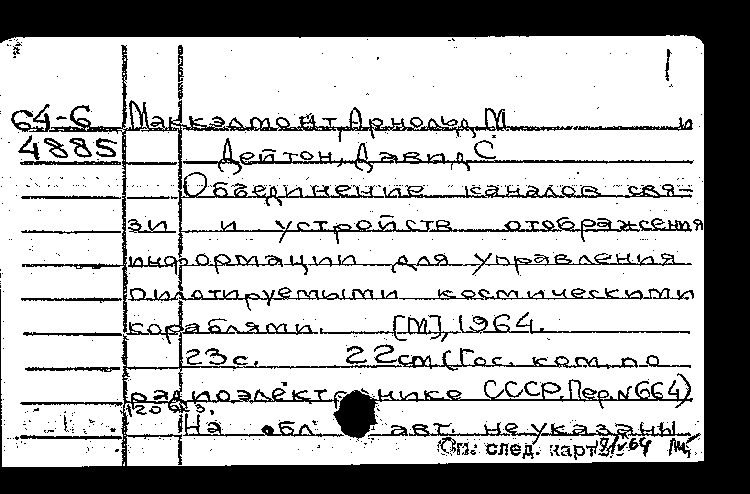 64-6 Маккэлмонт, Арнольд М и
4885 Дейтон, Давид С
Объединение каналов свя-
зи и устройств отображения
информации для управления
пилотируемыми космическими
кораблями. [М], 1964.
23с. 22см (Гос. ком. по
радиоэлектронике СССР. Пер. N664)
На обл авт. не указаны
См. след. карт.